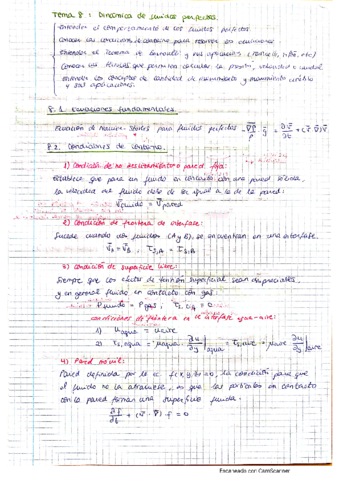 Tema 8: Dinámica de fluidos perfectos.
Entender el comportamiento de los fluidos perfectos.
Conocer las condiciones de contorno para resolver las ecuaciones
Entender el teorema de Bernoulli y sus aplicaciones (Venturi, tubo, etc)
Conocer las que permiten calcular la presión, velocidad o caudal
Entender los conceptos de cantidad de movimiento y momento cinético
y sus aplicaciones.
8.1. Ecuaciones fundamentales.
Ecuación de Navier-Stokes para fluidos perfectos
8.2. Condiciones de contorno.
1) Condición de no deslizamiento o pared fija:
Establece que para un fluido en contacto con una pared sólida,
la velocidad del fluido debe de ser igual a la de la pared:
V̄fluido = V̄pared
2) Condición de frontera de interfase:
Sucede cuando dos fluidos (A y B), se encuentran en una interfase.
V̄A = V̄B , τS,A = τS,B
3) Condición de superficie libre:
Siempre que los efectos de tensión superficial sean despreciables,
y en general fluido en contacto con gas.
Pfluido = Pgas ; = 0
condiciones de frontera en la interfase agua-aire:
1) uagua = uaire
2) τS,agua = μagua · ∂u/∂y)agua = τS,aire = μaire ∂u/∂y)aire
4) Pared móvil:
Pared definida por la ec. f(x,y,z,t)=0, la condición para que
el fluido no la atraviese, es que las partículas en contacto
con la pared forman una superficie fluida:
∂f/∂t + (v̄ · ∇̄) f = 0
Escaneado con CamScanner